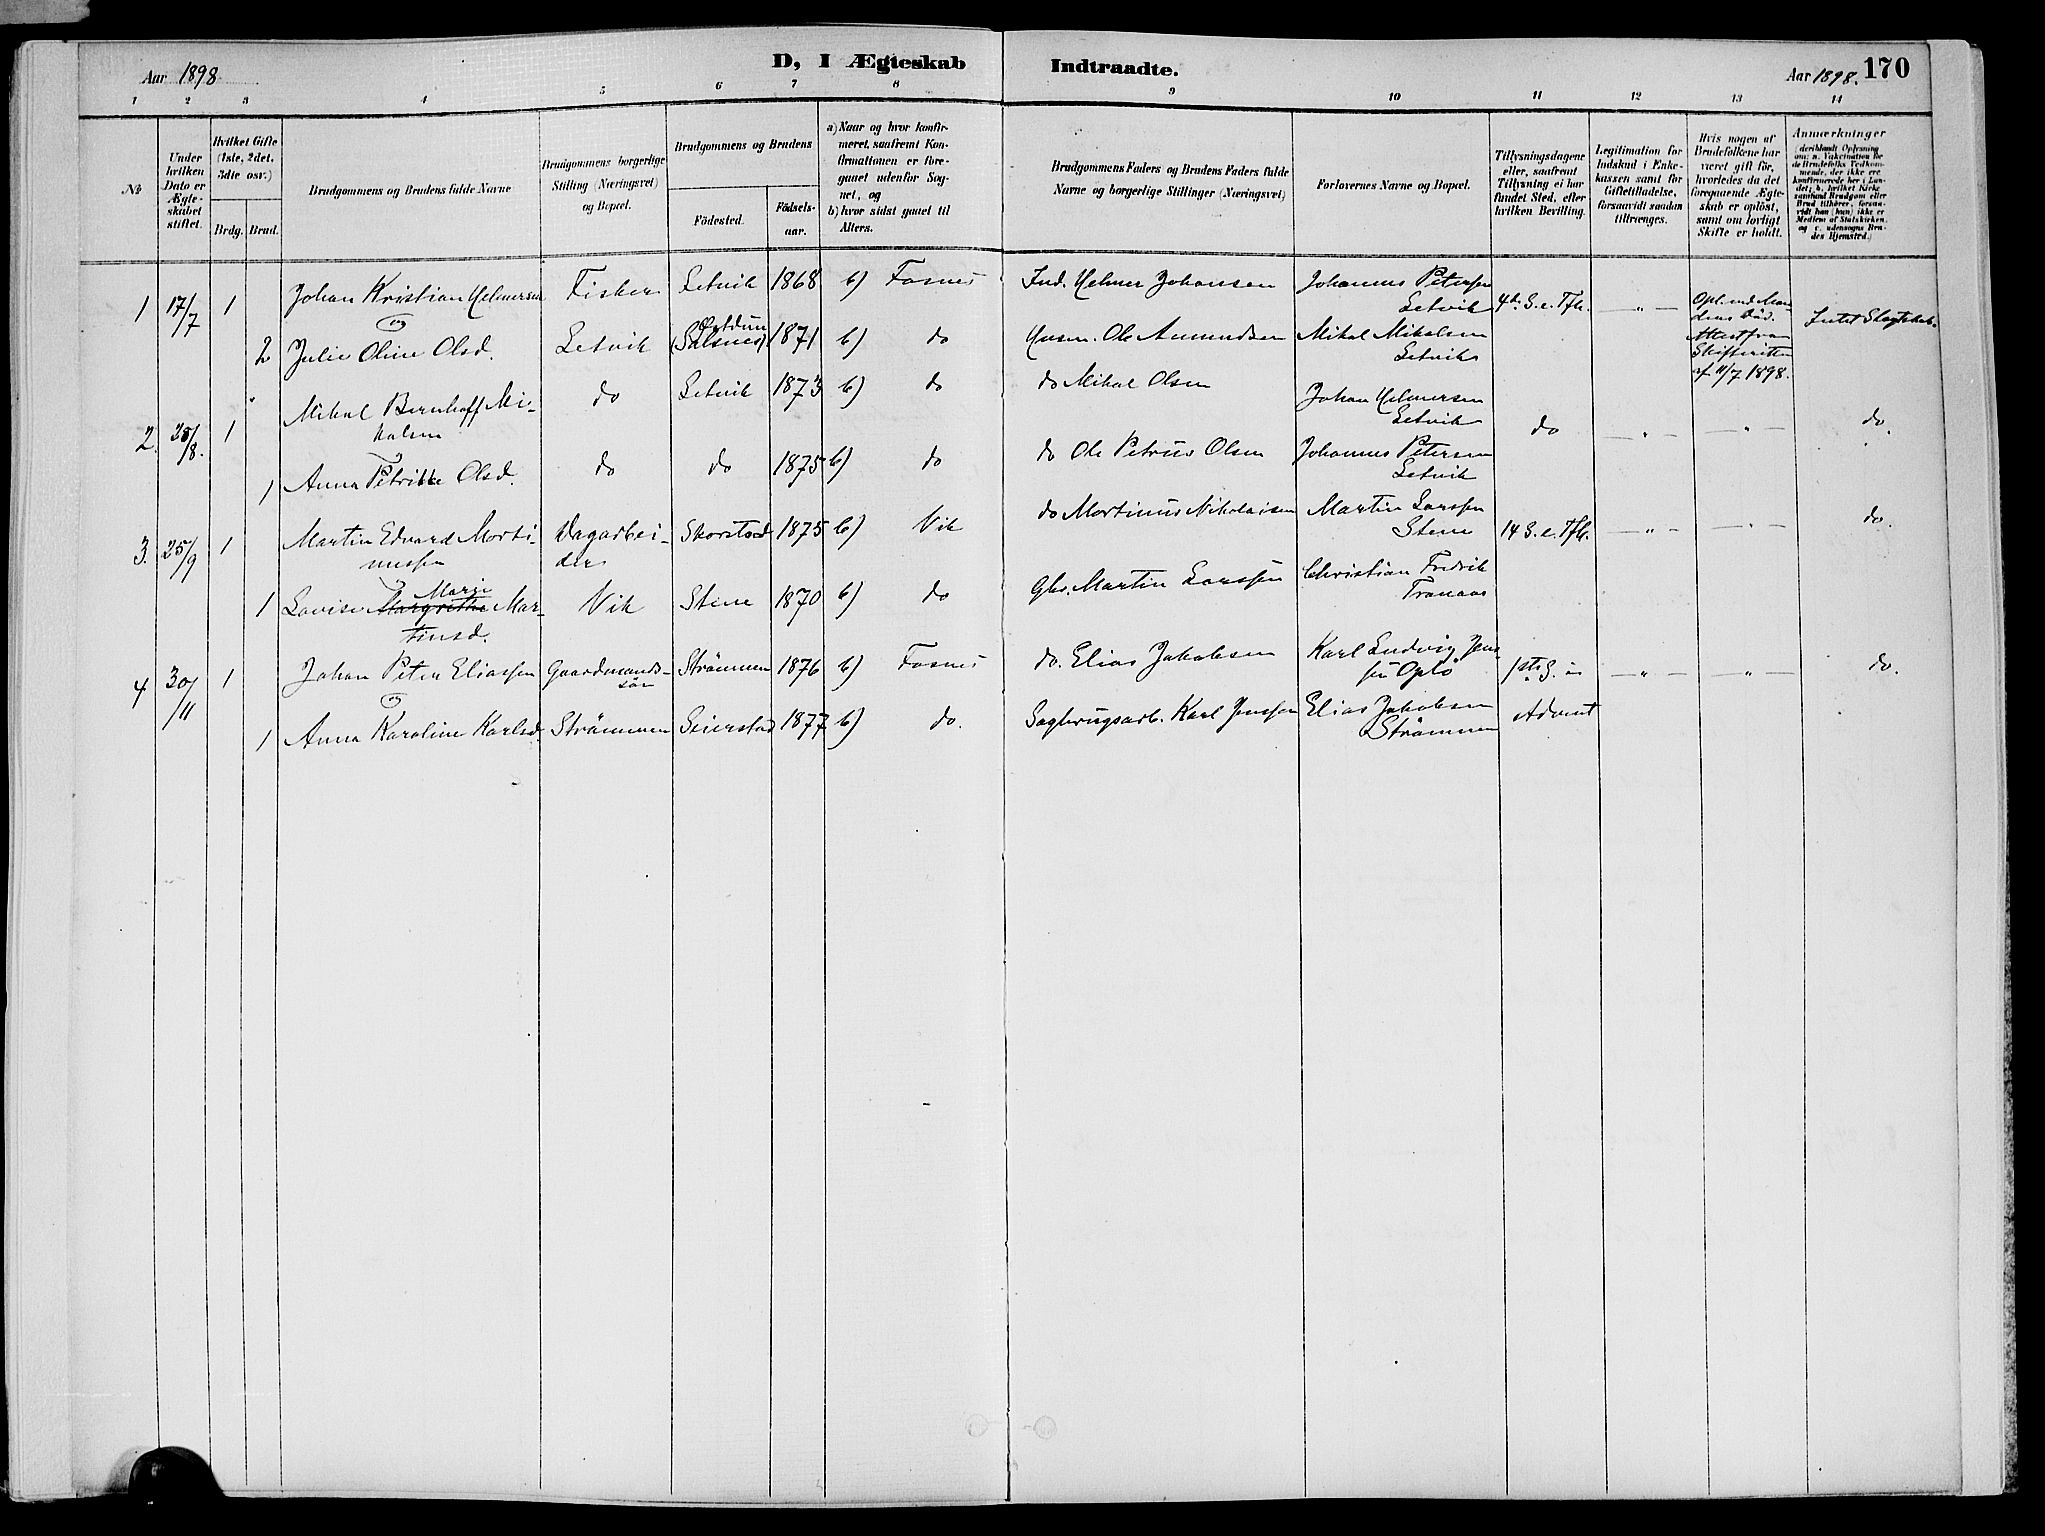 Aar 1898
D, I Ægteskab Indtraadte.
Aar 1898. 170
1 2 3 4 5 6 7 8 9 10 11 12 13 14
№
Under hvilken Dato er Ægteskabet stiftet.
Hvilket Gifte (1ste, 2det, 3die osv.)
Brdg. Brud.
Brudgommens og Brudens fulde Navne
Brudgommens borgerlige Stilling (Næringsvei) og Bopæl.
Brudgommens og Brudens
Födested.
Födsels-aar.
a) Naar og hvor konfirmeret, saafremt Konfirmationen er foregaaet udenfor Sognet, og
b) hvor sidst gaaet til Alters.
Brudgommens Faders og Brudens Faders fulde Navne og borgerlige Stillinger (Næringsvei)
Forlovernes Navne og Bopæl.
Tillysningsdagene eller, saafremt Tillysning ei har fundet Sted, efter hvilken Bevilling.
Legitimation for Indskud i Enkekassen samt for Giftetilladelse, forsaavidt saadan tiltrænges.
Hvis nogen af Brudefolkene har været gift för, hvorledes da det foregaaende Ægteskab er oplöst, samt om lovligt Skifte er holdt.
Anmærkninger (deriblandt Oplysning om: a. Vakcination for de Brudefolks Vedkommende, der ikke ere konfirmerede her i Landet; b. hvilket Kirkesamfund Brudgom eller Brud tilhörer, forsaavidt han (hun) ikke er Medlem af Statskirken, og c. udensogns Brudes Hjemsted.)
1 17/7 1 Johan Kristian Helmersen Fisker Setvik 1868 b) Fosnes Ind. Helmer Johansen Johannes Petersen
Setvik 4de S. e. Tfh. — " —
og
2 Julie Oline Olsd. Setvik (Salsnes) 1871 b) do Husm. Ole Amundsen Mikal Mikalsen
Setvik
Attest fra
Skifteretten
af 11/7 1898.
Intet Slægtskab.
2. 28/8. 1 Mikal Bernhoff Mi-
kalsen do Setvik 1873 b) do do Mikal Olsen Johan Helmersen
Setvik do — " — — " — do.
1 Anna Petrikke Olsd. do do 1875 b) do do Ole Petrus Olsen Johannes Petersen
Setvik
3. 25/9 1 Martin Edvard Morti-
nussen Dagarbei-
der Skorstad 1875 b) Vik do Mortinus Nikolaisen Martin Larssen
Stene 14 S. e. Tfh. — " — — " — do.
1 Lovise Margrethe Marie Mar-
tinsd. Vik Stene 1870 b) do Gbr. Martin Larssen Christian Fredrik
Tranaas
4 30/11 1 Johan Peter Eliassen Gaardmands-
sön Strömmen 1876 b) Fosnes do. Elias Jakobsen Karl Ludvig Jens-
sen Oplö 1ste S. i — " — — " — do.
og
1 Anna Karoline Karlsd. Strömmen Seierstad 1877 b) do. Sagbrugsarb. Karl Jenssen Elias Jakobsen
Strömmen Advent